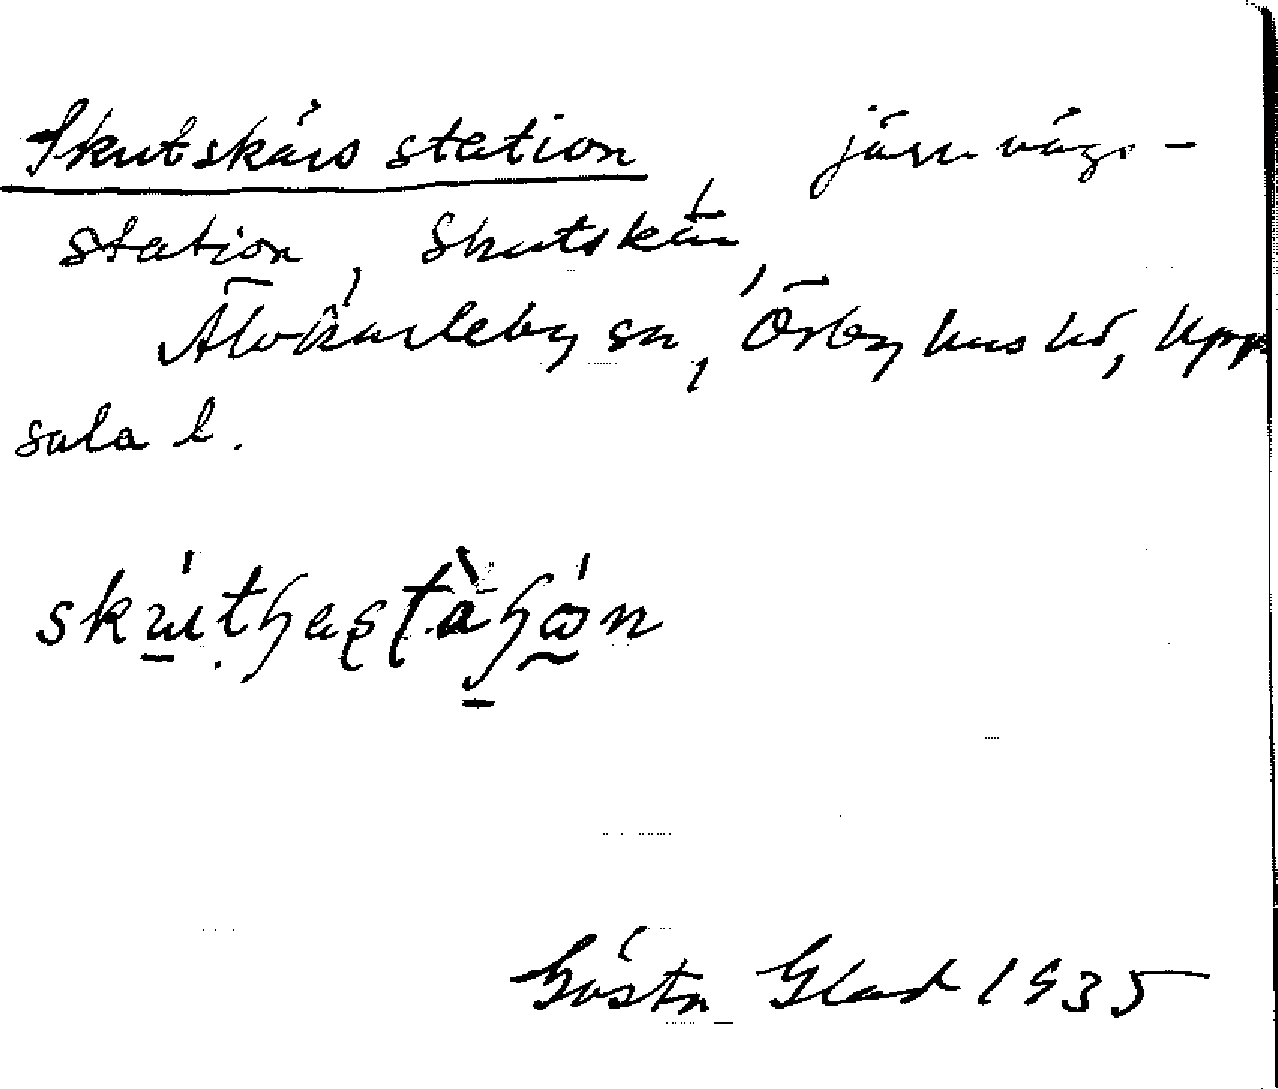 Skutskärs station järnvägs-
station, Skutskär,
Älvkarleby sn, Örbyhus hd, Upp
sala l.
Gösta Glad 1935